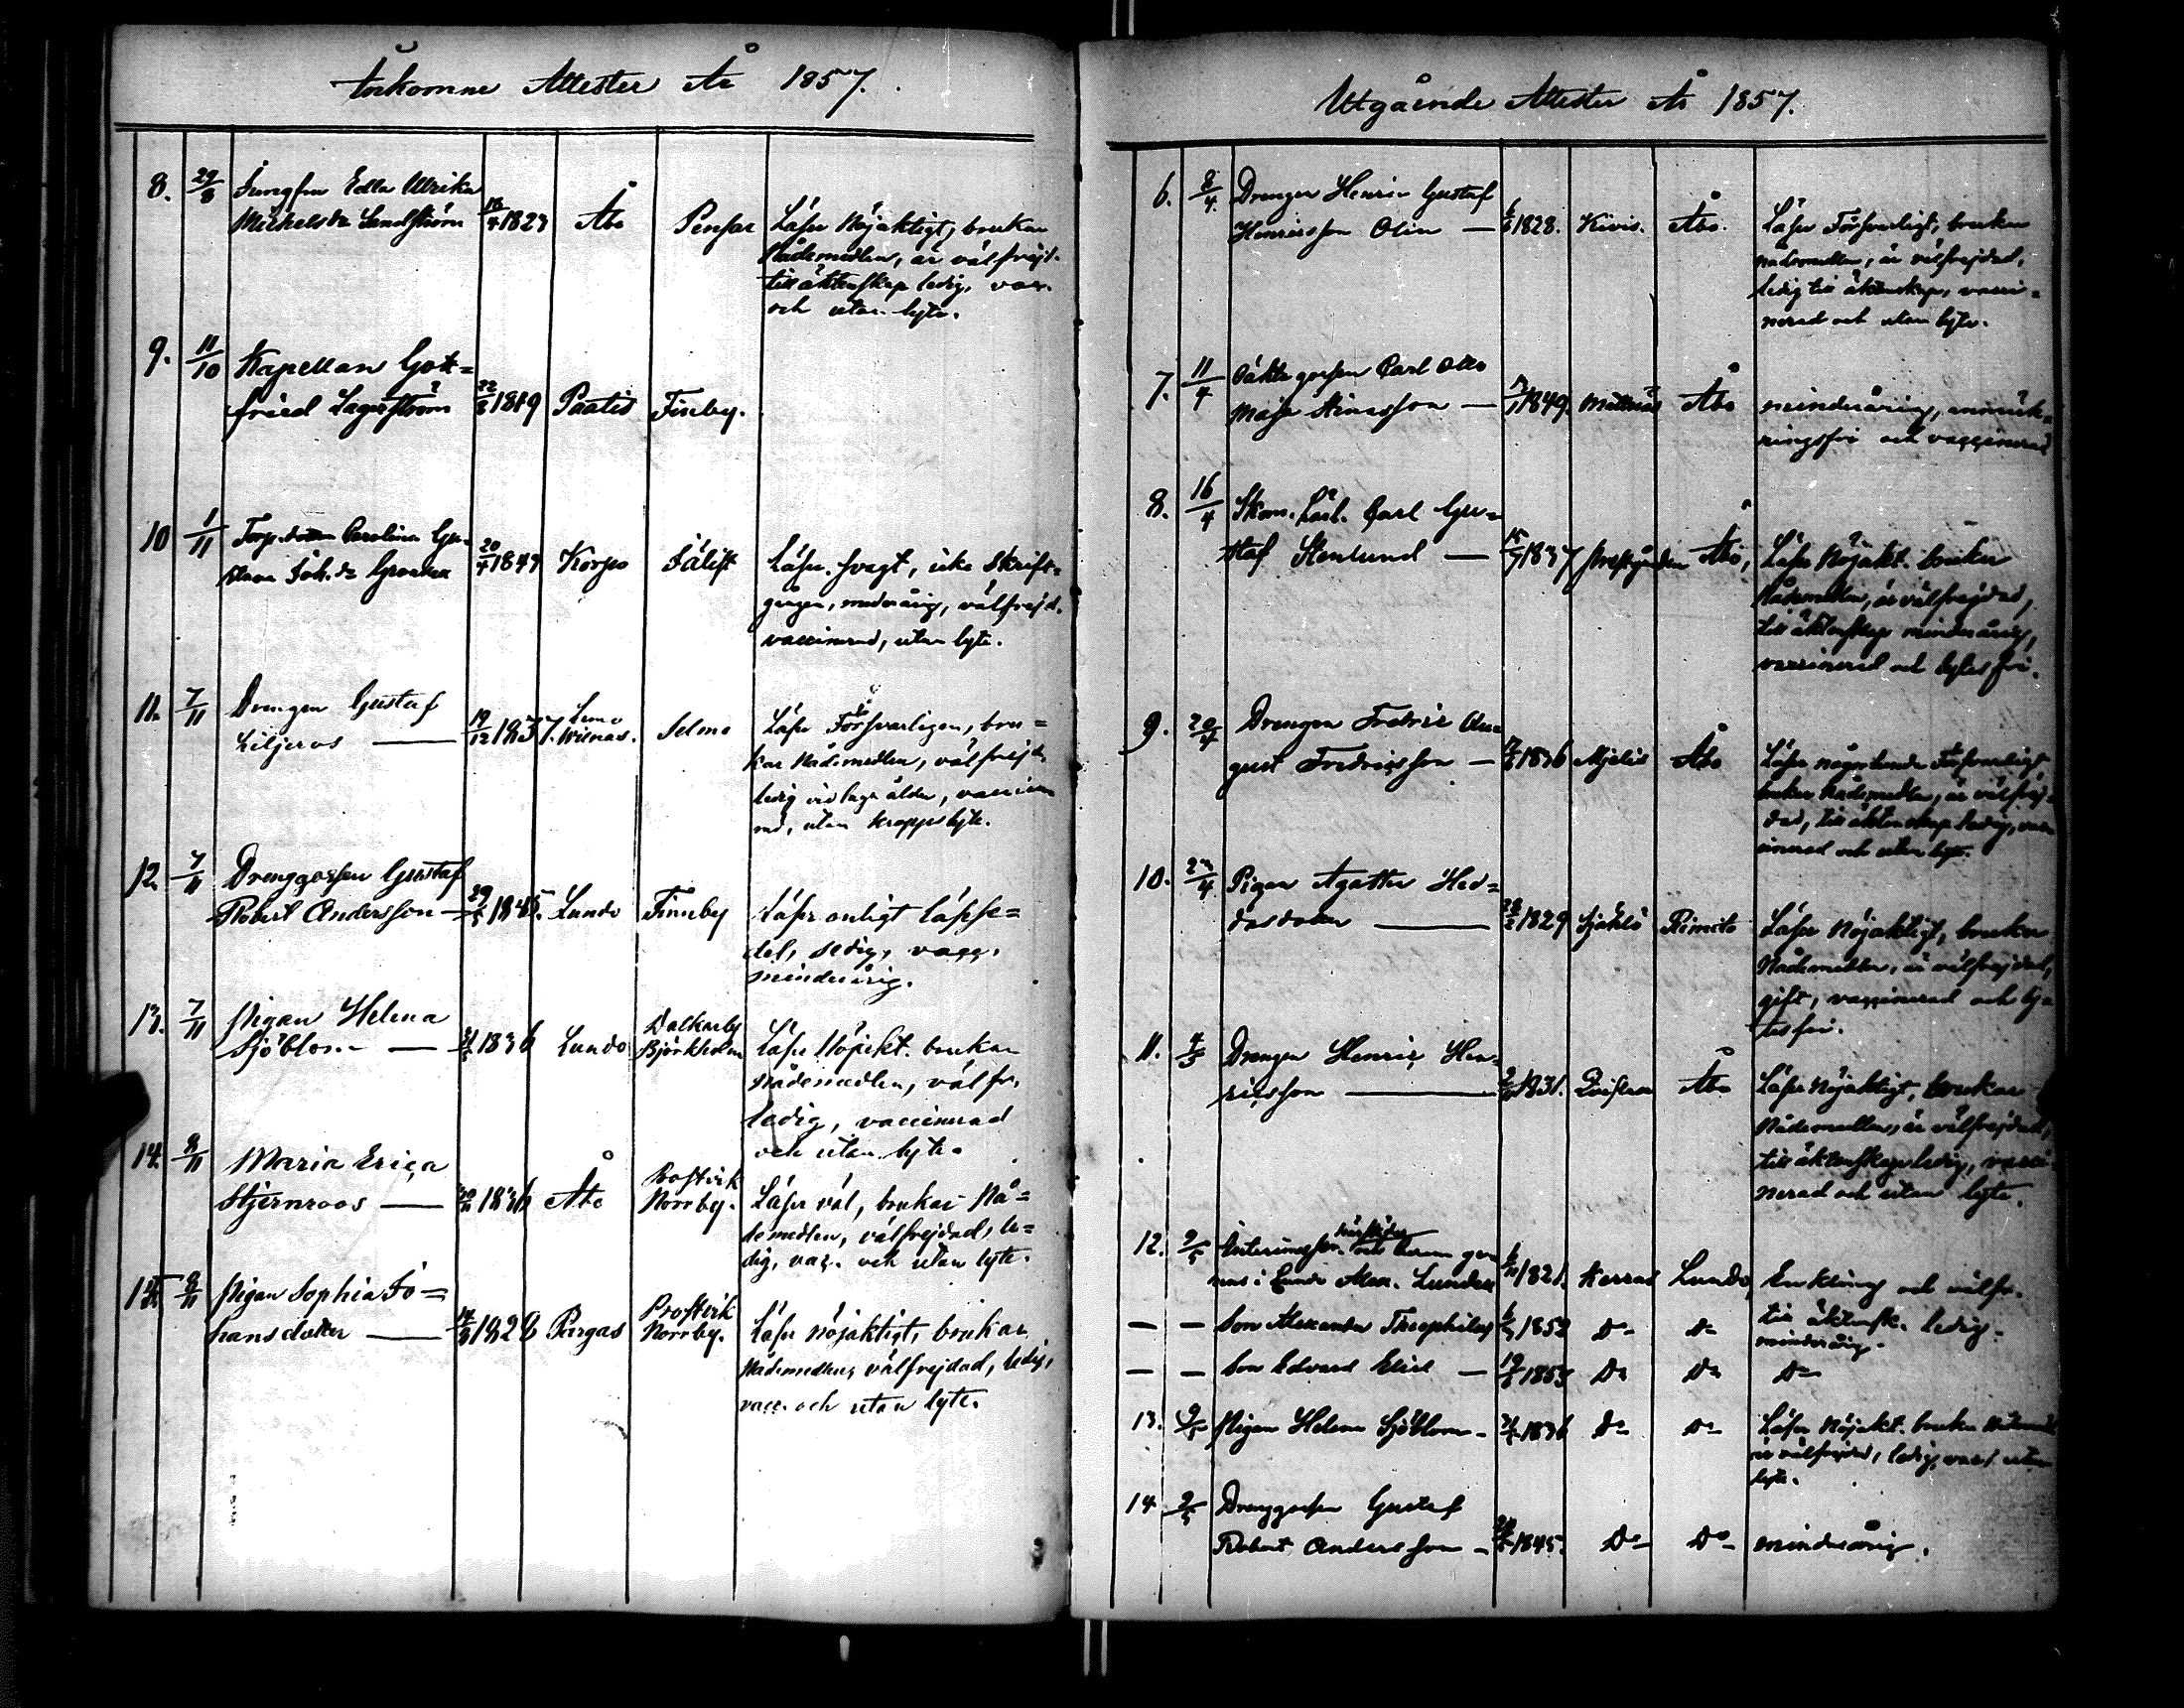 Inkomne Attester År 1857.
8. 29/8 Jungfru Edla Ulrika
Mickelsdr Sandström 18/4 1823 Åbo Pensar Läser Nöjaktigt, brukar
Nådemedlen, är välfrejd.
till äktenskap ledig, vacc.
och utan lyte.
9. 11/10 Kapellan Gott=
fried Lagerström 22/8 1819 Paatis Finby.
10 1/11 Torp.dottren Carolina Gu-
stava Joh.dr 20/4 1847 Korpo Fälist Läser svagt, icke Skrift-
gången, minderårig, välfrejd.
vaccinerad, utan lyte.
11. 7/11 Drengen Gustaf
Liljeros — 19/12 1837. Lemo Selmo Läser Försvarligen, bru=
kar Nådemedlen, välfrejd.
ledig vid laga ålder, vaccine
rad, utan kroppslyte.
12. 7/11 Drenggossen Gustaf
Robert Andersson — 29/5 1845. Lundo Finneby Läser enligt lässe=
del, sedig, vacc.
minderårig.
13. 7/11 Pigan Helena
Sjöblom — 1836 Lundo Dalkarby
Björkholm Läser Nöjakt. brukar
Nådemedlen, välfr.
ledig, vaccinerad
och utan lyte.
14. 8/11 Maria Erica
Stjernroos — 1836 Åbo Prostvik
Norrby. Läser väl, brukar Nå=
demedlen, välfrejdad, le=
dig, vac. och utan lyte.
15. 8/11 Pigan Sophia Jo=
hansdotter — 1828 Pargas Prostvik
Norrby. Läser nöjaktigt, brukar
Nådemedlen, välfrejdad, ledig,
vacc. och utan lyte.
Utgående Attester År 1857.
6. 8/4 Drengen Henric Gustaf
Henricsson Olin — 1828. Kivis. Åbo. Läser Försvarligt, brukar
nådemedlen, är välfrejdad,
ledig till äktenskap, vacci=
nerad och utan lyte.
7. 11/4 Carl Otto
Maja Stinasson — 1849 Mattnäs Åbo minderårig, anmärk=
ningsfri och vaccinerad
8. 16/4 Skom. Lärl. Carl Gu=
staf Stenlund — 1837 Prestgården Åbo, Läser Nöjakt. brukar
Nådemedlen, är välfrejdad,
till äktenskap minderårig,
vaccinerad och lytesfri.
9. 20/4 Drengen Fredric Au=
gust Fredricsson — 1836 Mjelis Åbo Läser någorlunda Försvarligt
brukar Nådemedlen, är välfrej=
dad, till äktenskap ledig, vac
cinerad och utan lyte.
10. 23/4 Pigan Agatha Hed=
dasdotter — 28/2 1829 Sjöhlö Rimito Läser Nöjaktigt, brukar
Nådemedlen, är välfrejdad,
gift, vaccinerad och ly=
tesfri.
11. 4/5 Drengen Henric Hen=
ricsson — 1831. Åbo Läser Nöjaktigt, brukar
Nådemedlen, är välfrejdad,
till äktenskap ledig, vacci
nerad och utan lyte.
12. 9/5
i Lundo Alex. Lundell 1821. Karras Lundo, Enkling och välfr.
till äktensk. ledig.
— — Son Alexander Theophilus 1853 Do Do minderårig.
— — Son Edvard Eliel — 19/8 1853 Do Do Do
13. 9/5 Pigan Helena Sjöblom — 1836 Do Do Läser Nöjakt. brukar
är välfrejdad, ledig, vacc. utan
lyte.
14 9/5 Drenggossen Gustaf
Robert Andersson — 1845. Do Do minderårig.